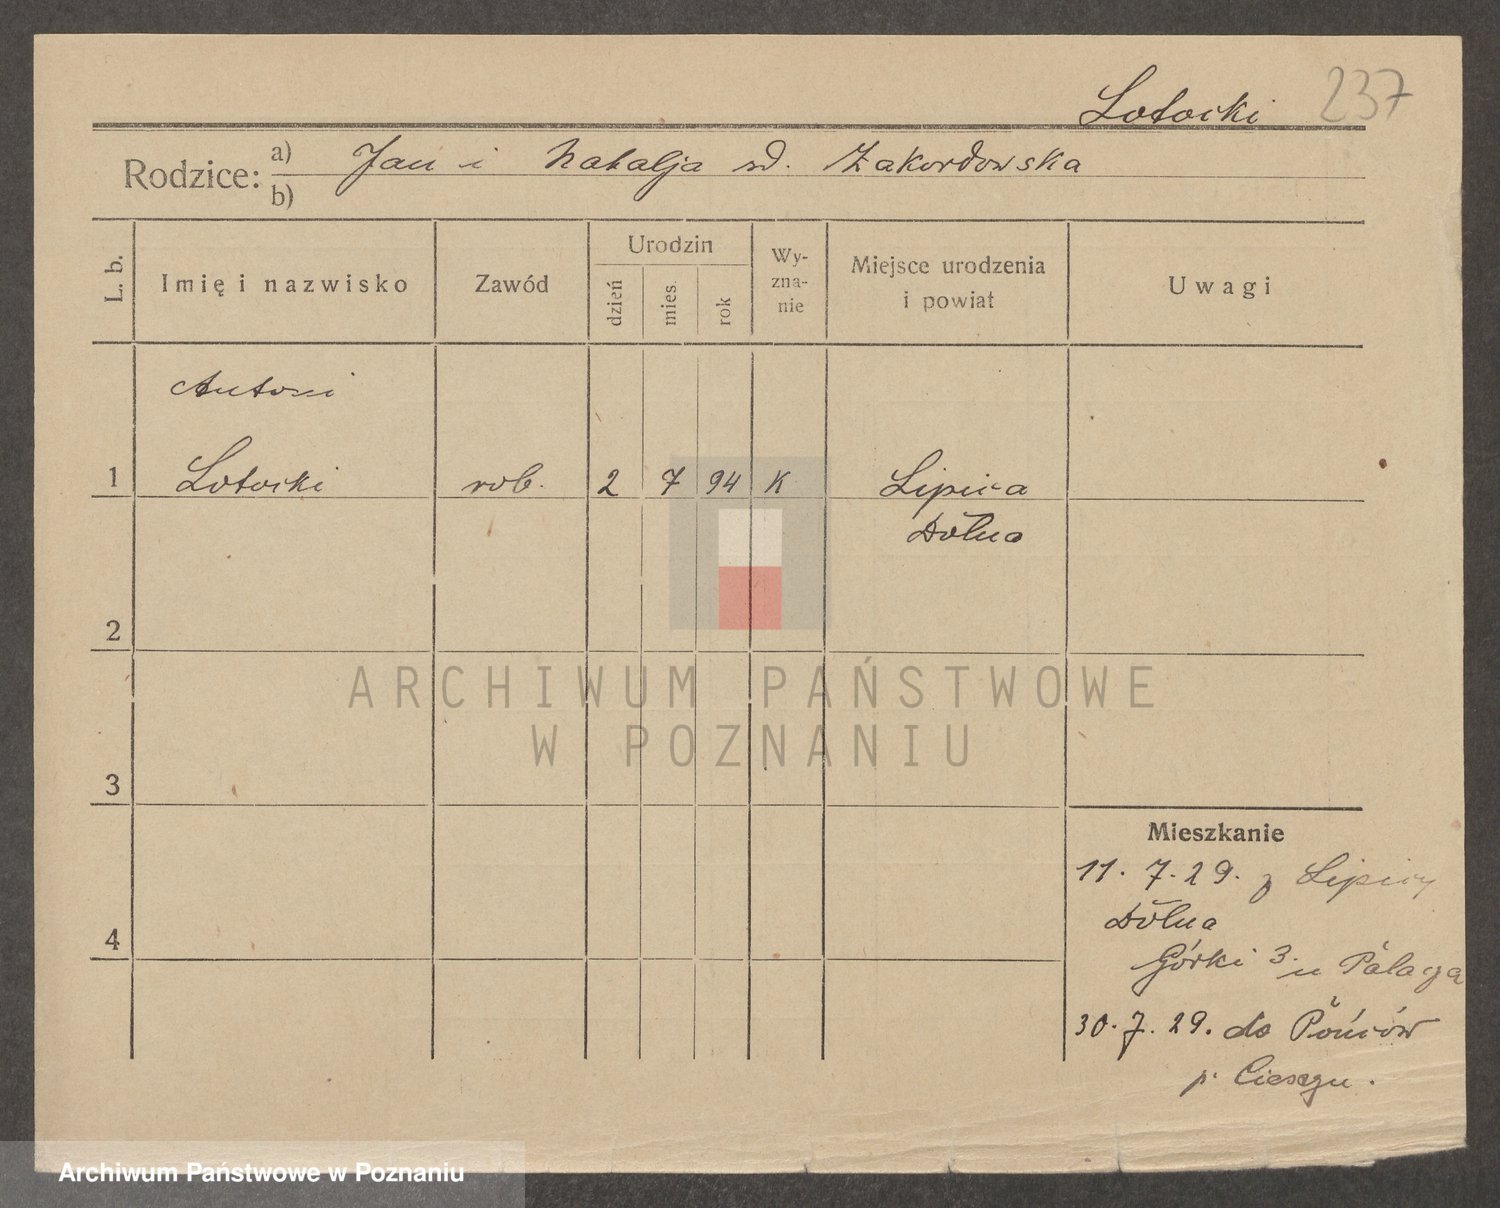 Lotocki 237
Rodzice: a) Jan i Natalja zd. Zakordowska
b)
L. b. Imię i nazwisko Zawód Urodzin dzień mies. rok Wy-zna-nie Miejsce urodzenia i powiat Uwagi
Antoni
1 Lotocki rob. 2 7 94 K Lipica
Dolna
2
3
4
ARCHIWUM PAŃSTWOWE
W POZNANIU
Mieszkanie
11. 7. 29. z Lipicy
Dolna
Górki 3. u
30. 7. 29. do
p. Cieszyn.
Archiwum Państwowe w Poznaniu